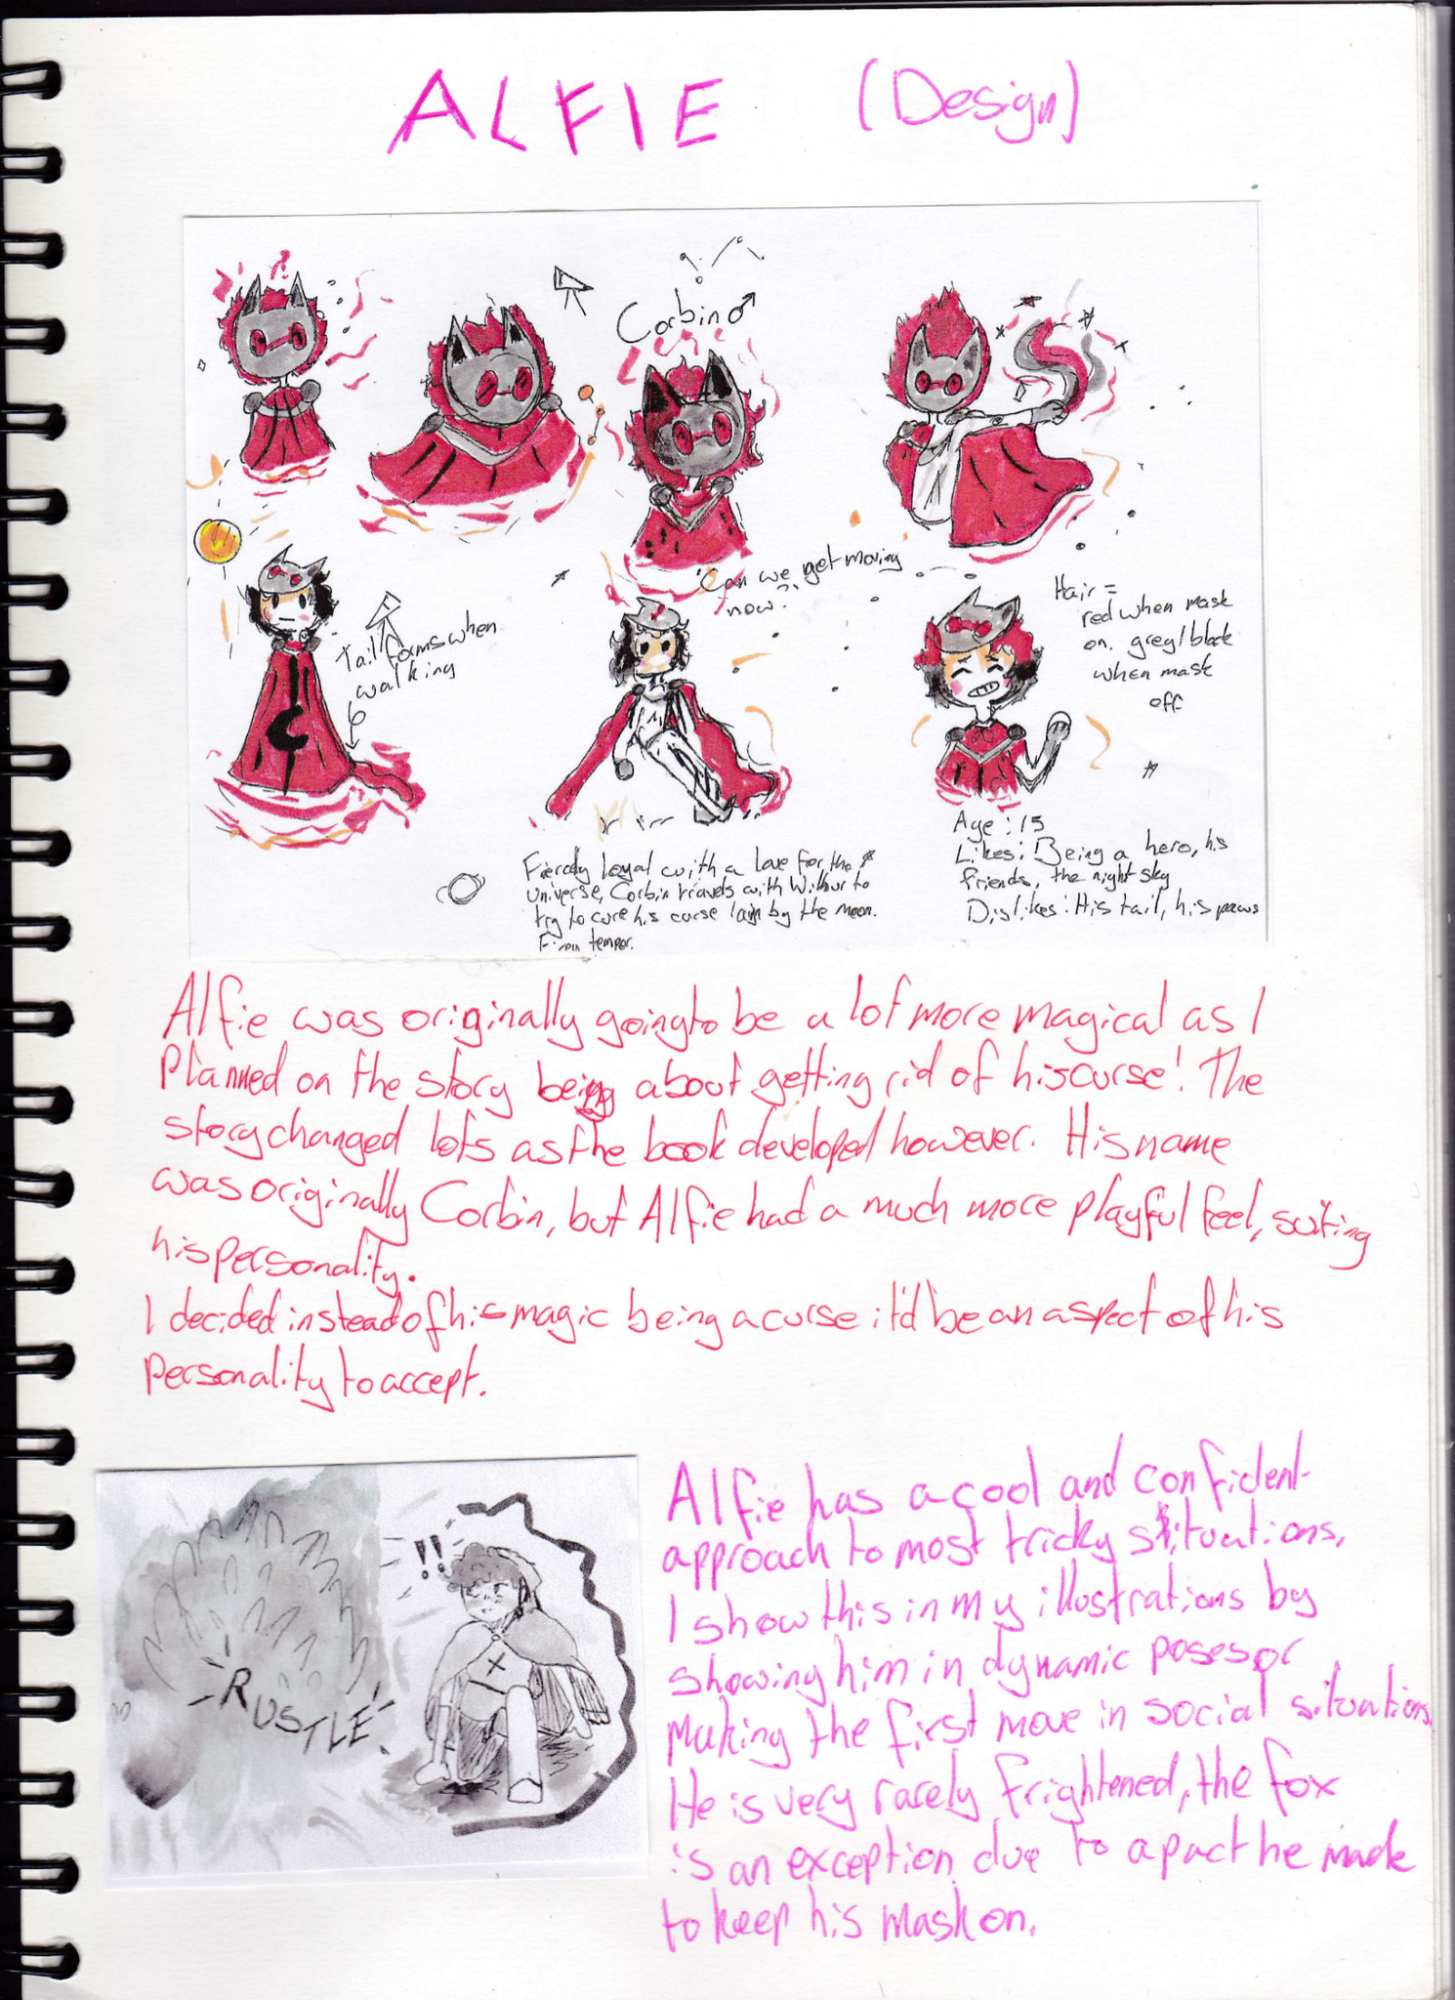 ALFIE (Design)
Corbin ♂
"Can we get moving
now?"
Tail forms when
walking
Hair =
red when mask
on. grey/black
when mask
off
Fiercely loyal with a love for the
universe, Corbin travels with Wilbur to
try to cure his curse lain by the moon.
temper.
Age : 15
Likes: Being a hero, his
friends, the night sky
Dislikes: His tail, his paws
Alfie was originally going to be a lot more magical as I
planned on the story being about getting rid of his curse! The
story changed lots as the book developed however. His name
was originally Corbin, but Alfie had a much more playful feel, suiting
his personality.
I decided instead of his magic being a curse it'd be an aspect of his
personality to accept.
!!
RUSTLE
Alfie has a cool and confident
approach to most tricky situations,
I show this in my illustrations by
showing him in dynamic poses or
making the first move in social situations.
He is very rarely frightened, the fox
is an exception due to a pact he made
to keep his mask on.